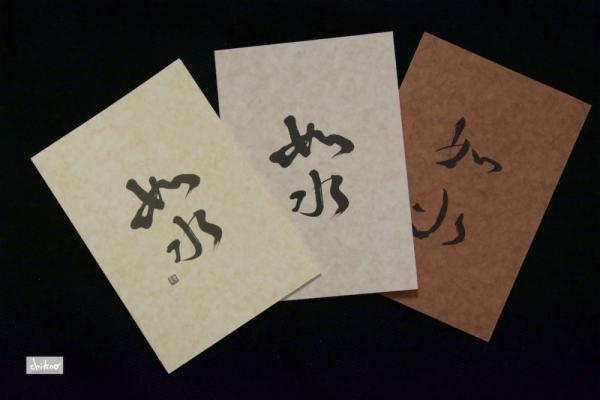 如
水
如
水
如
水